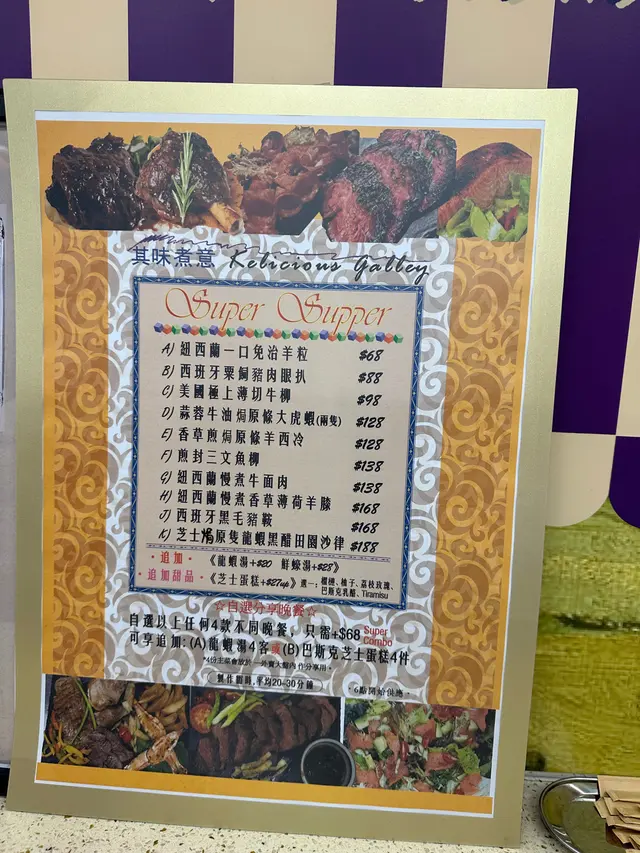 其味煮意 Kelicious Galley
Super Supper
A) 紐西蘭一口免治羊粒 $68
B) 西班牙粟飼豬肉眼扒 $88
C) 美國極上薄切牛柳 $98
D) 蒜蓉牛油焗原條大虎蝦(兩隻) $128
E) 香草煎焗原條羊西冷 $128
F) 煎封三文魚柳 $138
G) 紐西蘭慢煮牛面肉 $138
H) 紐西蘭慢煮香草薄荷羊膝 $168
J) 西班牙黑毛豬鞍 $168
K) 芝士焗原隻龍蝦黑醋田園沙律 $188
·追加·《龍蝦湯+$20 鮮蠔湯+$28》
·追加甜品·《芝士蛋糕+$27up》選一：榴槤、柚子、荔枝玫瑰、
巴斯克乳酪、Tiramisu
☆自選分享晚餐☆
自選以上任何4款不同晚餐，只需+$68 Super Combo
可享追加：(A)龍蝦湯4客或(B)巴斯克芝士蛋糕4件
*4份主菜會放於一外賣大盤內作分享用。
製作需時，平均20-30分鐘
·6點開始供應·